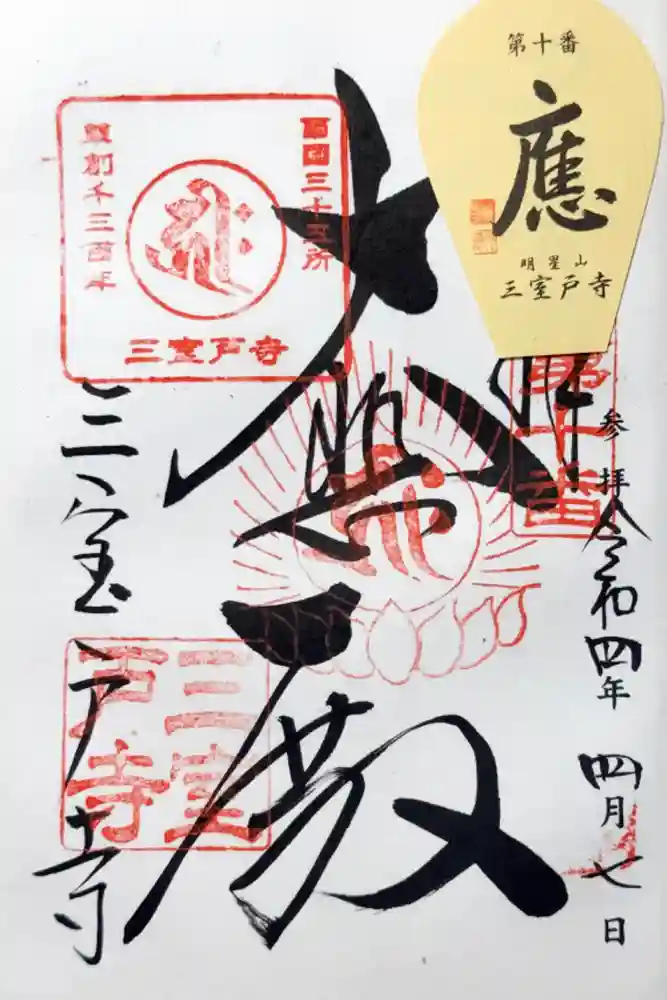 第十番
應
明星山
三室戸寺
第十番
参拝
令和四年 四月 七日
大悲殿
西国三十三所
草創千三百年
三室戸寺
三室戸寺
三室戸寺